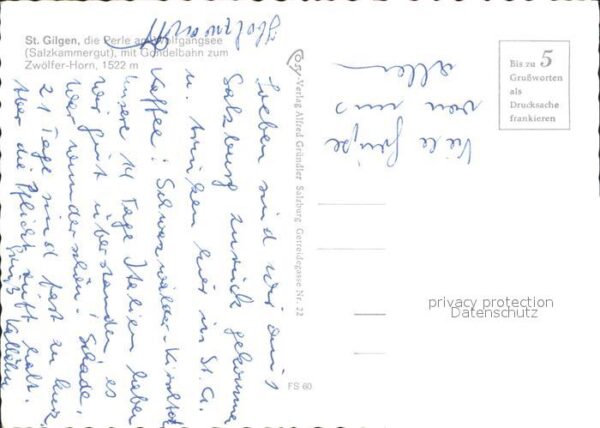 St. Gilgen, die Perle am Wolfgangsee
(Salzkammergut), mit Gondelbahn zum
Zwölfer-Horn, 1522 m
Soeben sind wir aus
Salzburg zurück gekommen
u. trinken hier in St. G.
Kaffee! Schwarzwälder-Kirschtorte
Unsere 14 Tage Italien haben
wir gut überstanden, es
war wunderschön! Schade,
21 Tage sind fast zu kurz
aber die Pflicht ruft halt.
Viele Grüße
von uns
allen
Cosy-Verlag Alfred Gründler Salzburg Getreidegasse Nr. 22
Bis zu 5
Grußworten
als
Drucksache
frankieren
FS 60
privacy protection
Datenschutz